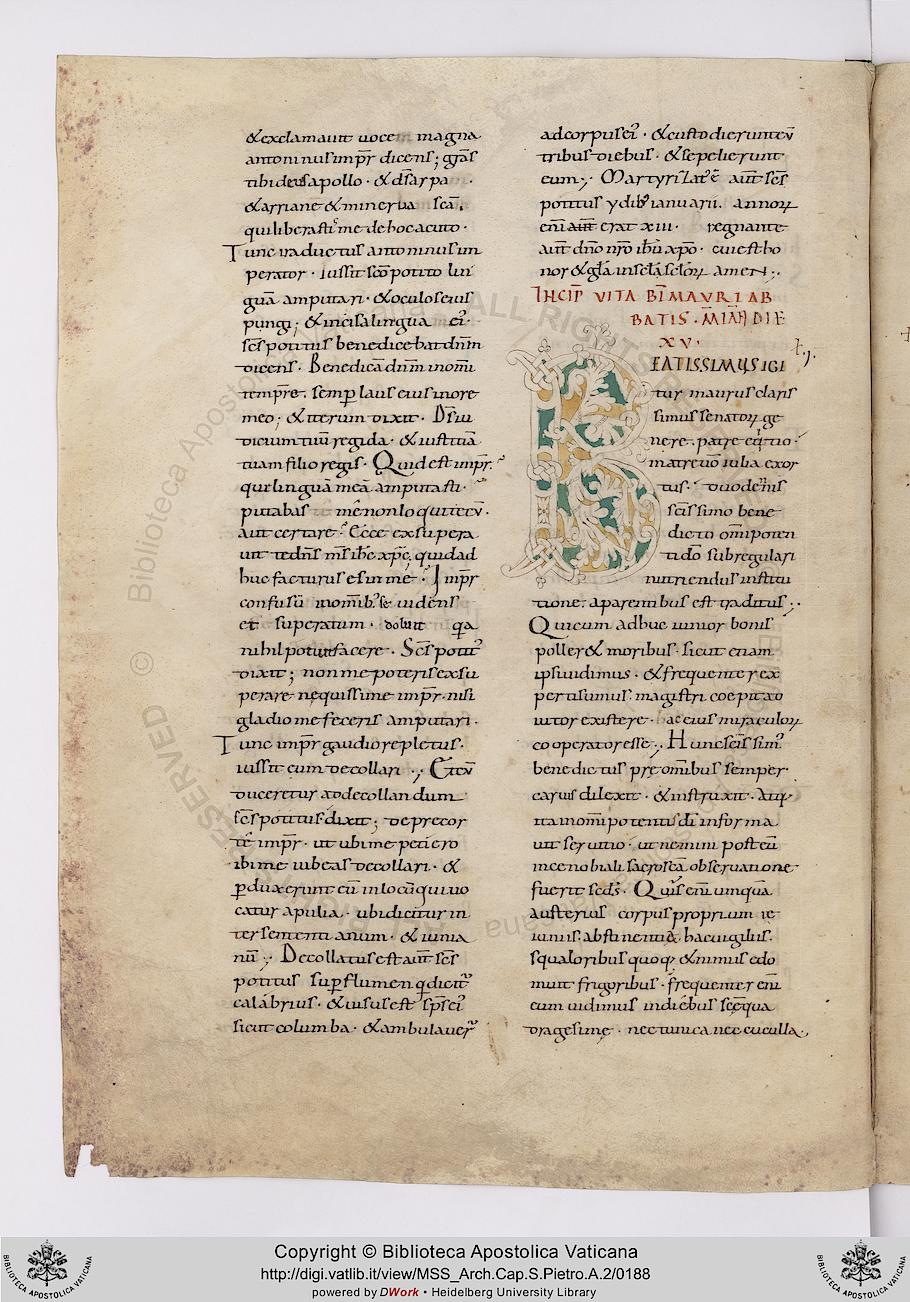 &exclamauit uocem magna
antoninus imp̄r dicens; gr̄as
tibi deus apollo · & d̄s arpa
& arriane & minerua sc̄a,
qui liberastis me de hoc acuto ·
Tunc traductus antoninus im
perator · iussit sc̄o potito lin
guā amputari · & oculos eius
pungi; & incisa lingua ei᷒ ·
sc̄s potitus benedicebat dn̄m
dicens · Benedicā dn̄m in om̄i
tempr̄e · semp̄ laus eius in ore
meo; & iterum dixit · D̄s iu
dicium tuū regi da · & iustitiā
tuam filio regis · Quid est imp̄r ·
qui linguā meā amputasti ·
putabas me non loqui tecū ·
aut certare · Ecce exsupera
uit te dn̄s m̄s ih̄c xp̄c · quid ad
huc facturus es in me · Imp̄r
confusū in om̄ib; se uidens
et superatum · doluit q̄a
nihil potuit facere · Sc̄s potit᷒
dixit; non me poteris exsu
perare nequissime imp̄r · nisi
gladio me feceris amputari ·
Tunc imp̄r gaudio repletus ·
iussit eum decollari ·, Et cū
duceretur ad decollandum
sc̄s potitus dixit; deprecor
te imp̄r · ut ubi me petiero
ibi me iubeas decollari · &
p̄duxerunt eū in locū qui uo
catur apulia · ubi dicitur in
ter sententianum · & iunia
nū ·, Decollatus est aut̄ sc̄s
potitus sup̄ flumen q̄ dicit᷒
calabrius · & uisus est sp̄s ei᷒
sicut columba · & ambulauer᷒
ad corpus ei᷒ · & custodierunt eū
tribus diebus · & sepelierunt
eum ·, Martyrizat᷒ ē aut̄ sc̄s
potitus ydib᷒ ianuarii · annoꝝ
eni᷒ aut̄ erat xiii · regnante
aut̄ dn̄o nr̄o ih̄u xp̄o · cui est ho
nor & gl̄a in sc̄la sc̄loꝝ amen ·,
INCIP̄ VITA BĪ MAVRI AB
BATIS · M̄ IAN̄ DIE
XV ·
BEATISSIMUS IGI
tur maurus claris
simus senatoꝝ ge
nere · patre eq̄tio ·
matre uō iulia exor
tus · duodenis
sc̄issimo bene
dicto om̄ipoten
ti dō sub regulari
nutriendus institu
tione · a parentibus est traditus ·,
Qui cum adhuc iunior bonis
poller& moribus · sicut etiam
ipsi uidimus · & frequenter ex
pertisumus · magistri coepit ad
iutor existere · hac eius miraculoꝝ
cooperator esse ·, Hunc sc̄issim᷒
benedictus prę om̄ibus semper
carius dilexit · & instruxit · Atq;
ita in om̄ipotentis d̄i informa
uit seruitio · ut nemini post eū
in cenobiali sacrosc̄a obseruatione
fuerit sc̄ds · Quis eni᷒ umquā
austerius corpus proprium ie
iuniis · abstinentia · hac uigiliis ·
squaloribus quoq; & nimis edo
muit frigoribus · frequenter eni᷒
eum uidimus in diebus sc̄e qua
dragesimę · nec tunica nec cuculla ·,
Copyright © Biblioteca Apostolica Vaticana
http://digi.vatlib.it/view/MSS_Arch.Cap.S.Pietro.A.2/0188
powered by DWork • Heidelberg University Library